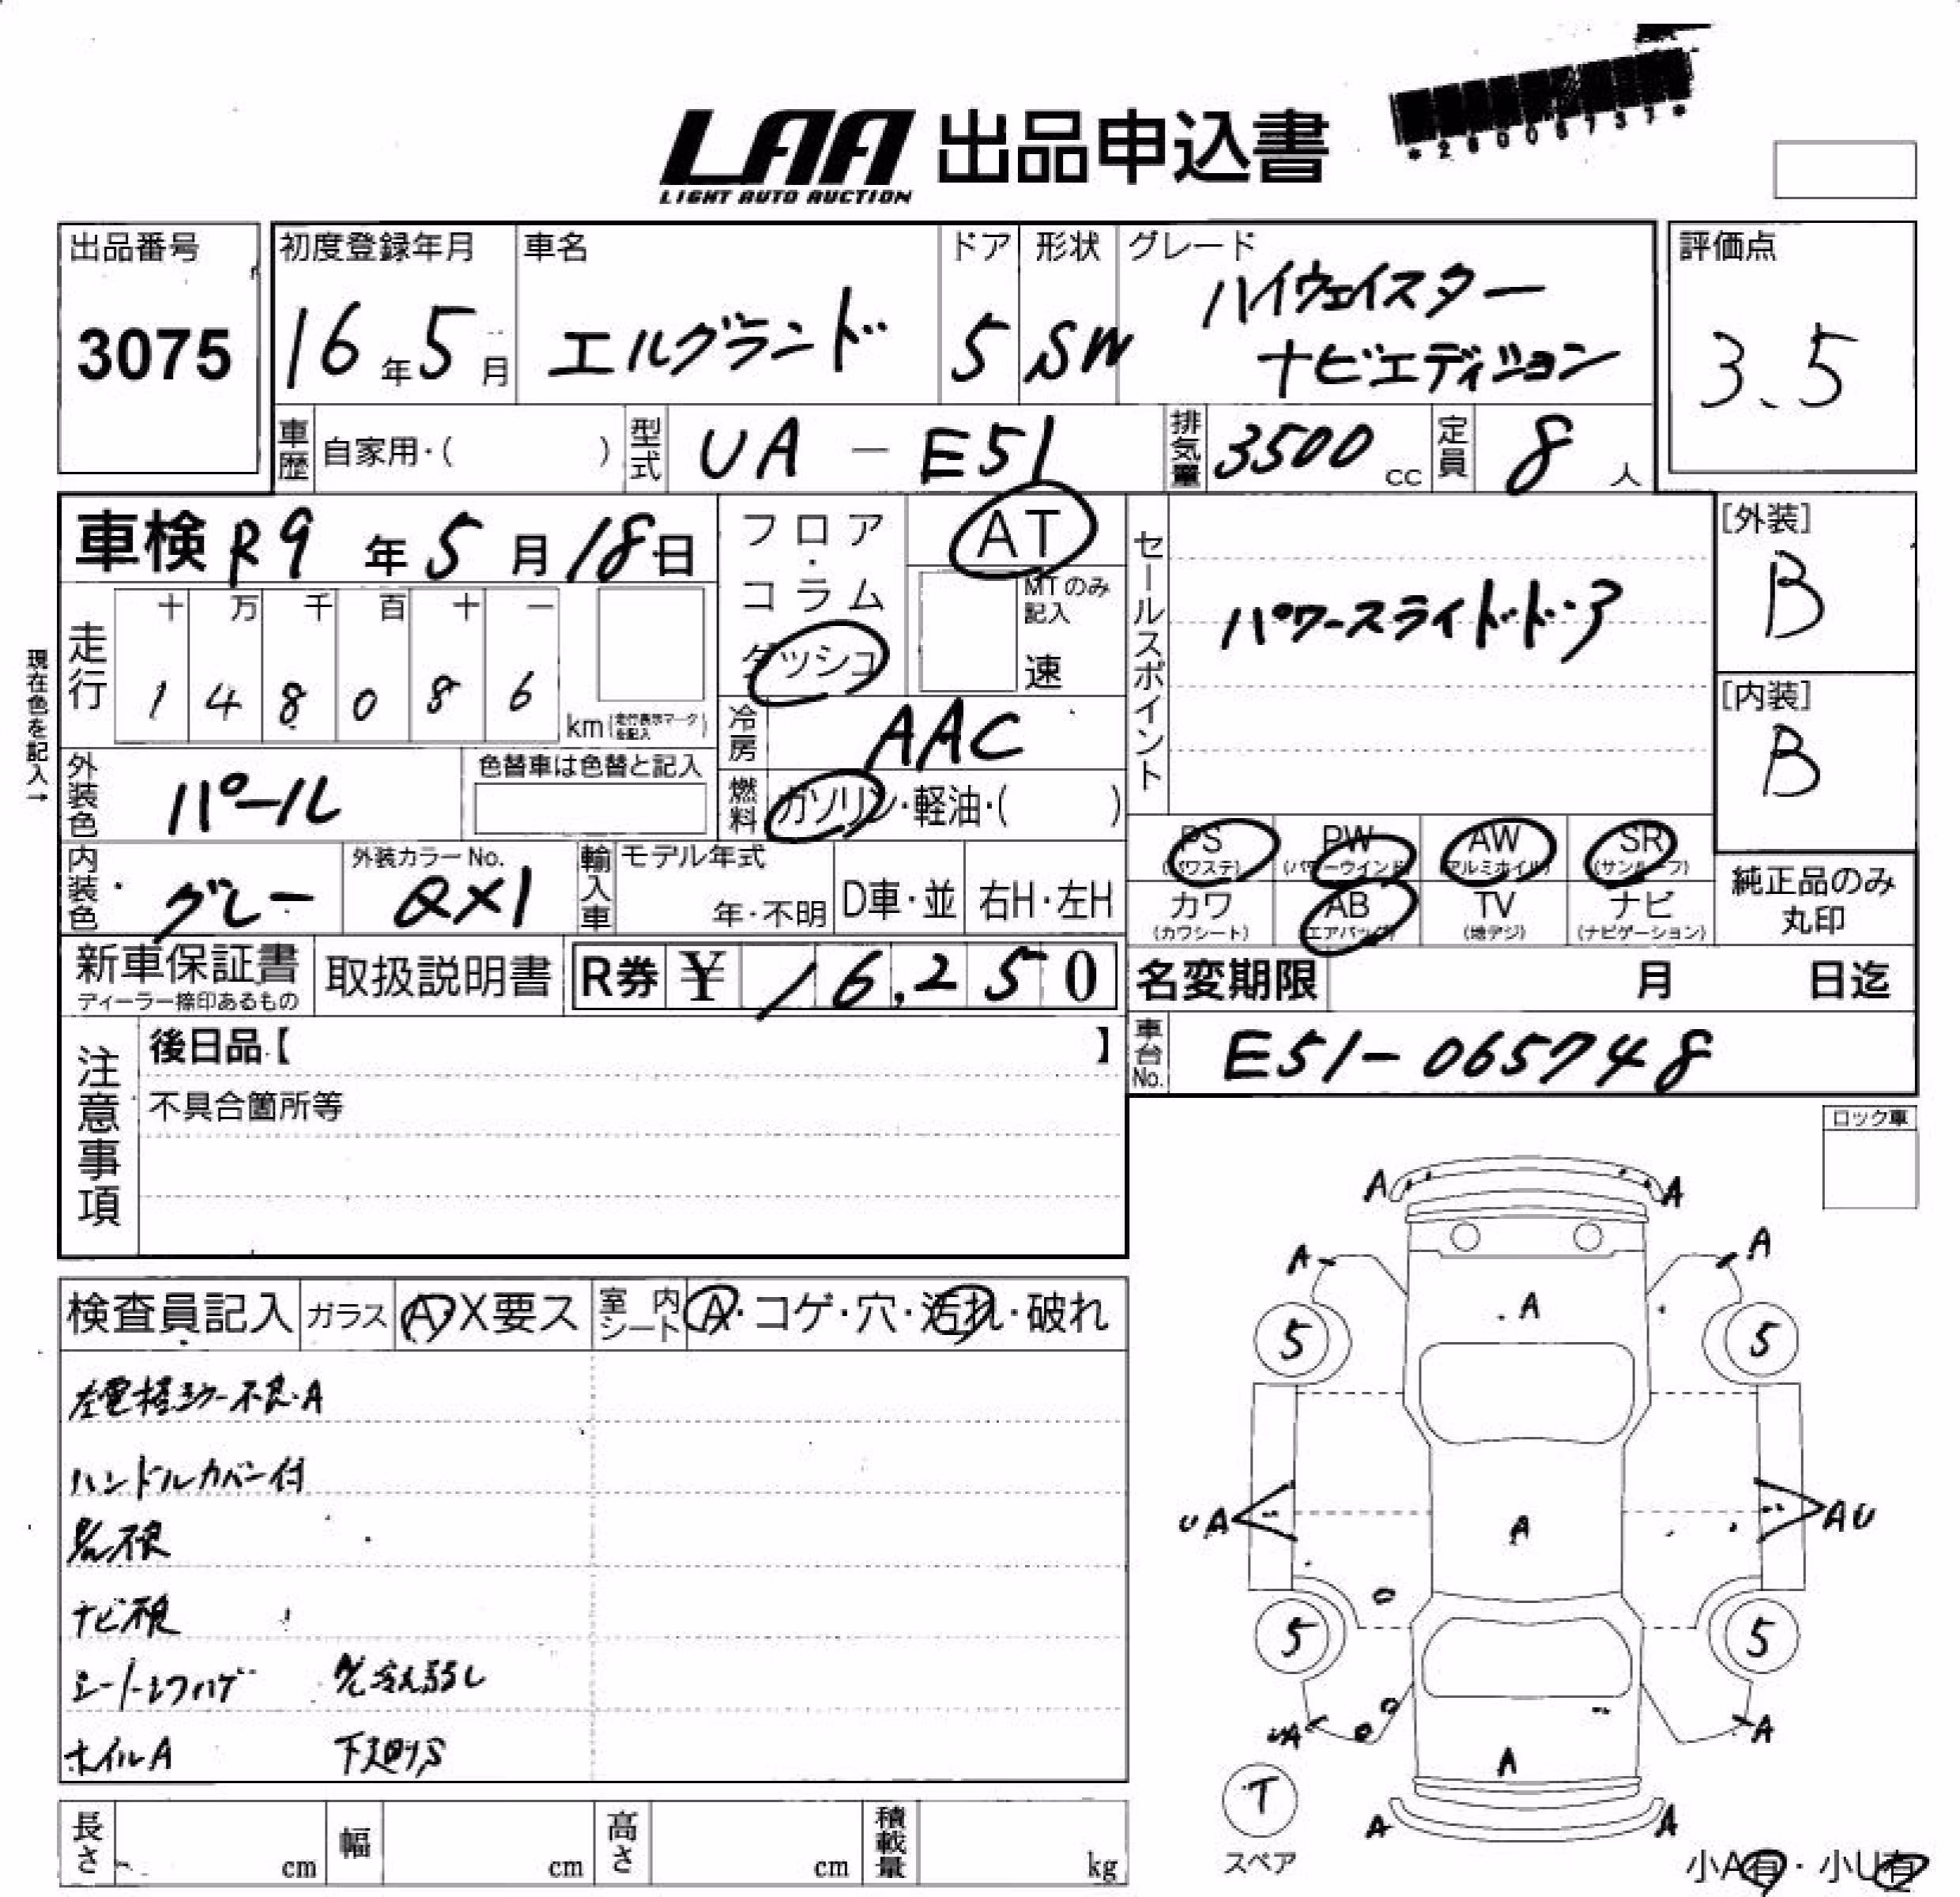 LAA 出品申込書
LIGHT AUTO AUCTION
出品番号
3075
初度登録年月
16年5月
車名
エルグランド
ドア
5
形状
SW
グレード
ハイウェイスター
ナビエディション
評価点
3.5
車歴 自家用・( )
型式 UA - E51
排気量 3500 cc
定員 8 人
車検 R9年5月18日
フロア・コラム
ダッシュ
AT
MTのみ記入
速
セールスポイント
パワースライドドア
[外装]
B
[内装]
B
現在色を記入→
走行
十 万 千 百 十 一
1 4 8 0 8 6
km (走行表示マークを記入)
冷房 AAC
外装色 パール
色替車は色替と記入
燃料 ガソリン・軽油・( )
内装色 グレー
外装カラーNo.
QX1
輸入車
モデル年式
年・不明
D車・並
右H・左H
PS (パワステ)
PW (パワーウインド)
AW (アルミホイル)
SR (サンルーフ)
カワ (カワシート)
AB (エアバッグ)
TV (地デジ)
ナビ (ナビゲーション)
純正品のみ
丸印
新車保証書
ディーラー捺印あるもの
取扱説明書
R券 ¥ 16,250
名変期限 月 日迄
車台No. E51-065748
注意事項
後日品【 】
不具合箇所等
ロック車
検査員記入
ガラス A・X要ス
室内シート A・コゲ・穴・汚れ・破れ
左電格ミラー不良・A
ハンドルカバー付
ナビ不良
シートシワハゲ
ホイルA 下廻りS
A A
A A
A
5 5
UA A AU
5 5
UA A
A
A A
T
スペア
小A有・小U有
長さ cm
幅 cm
高さ cm
積載量 kg